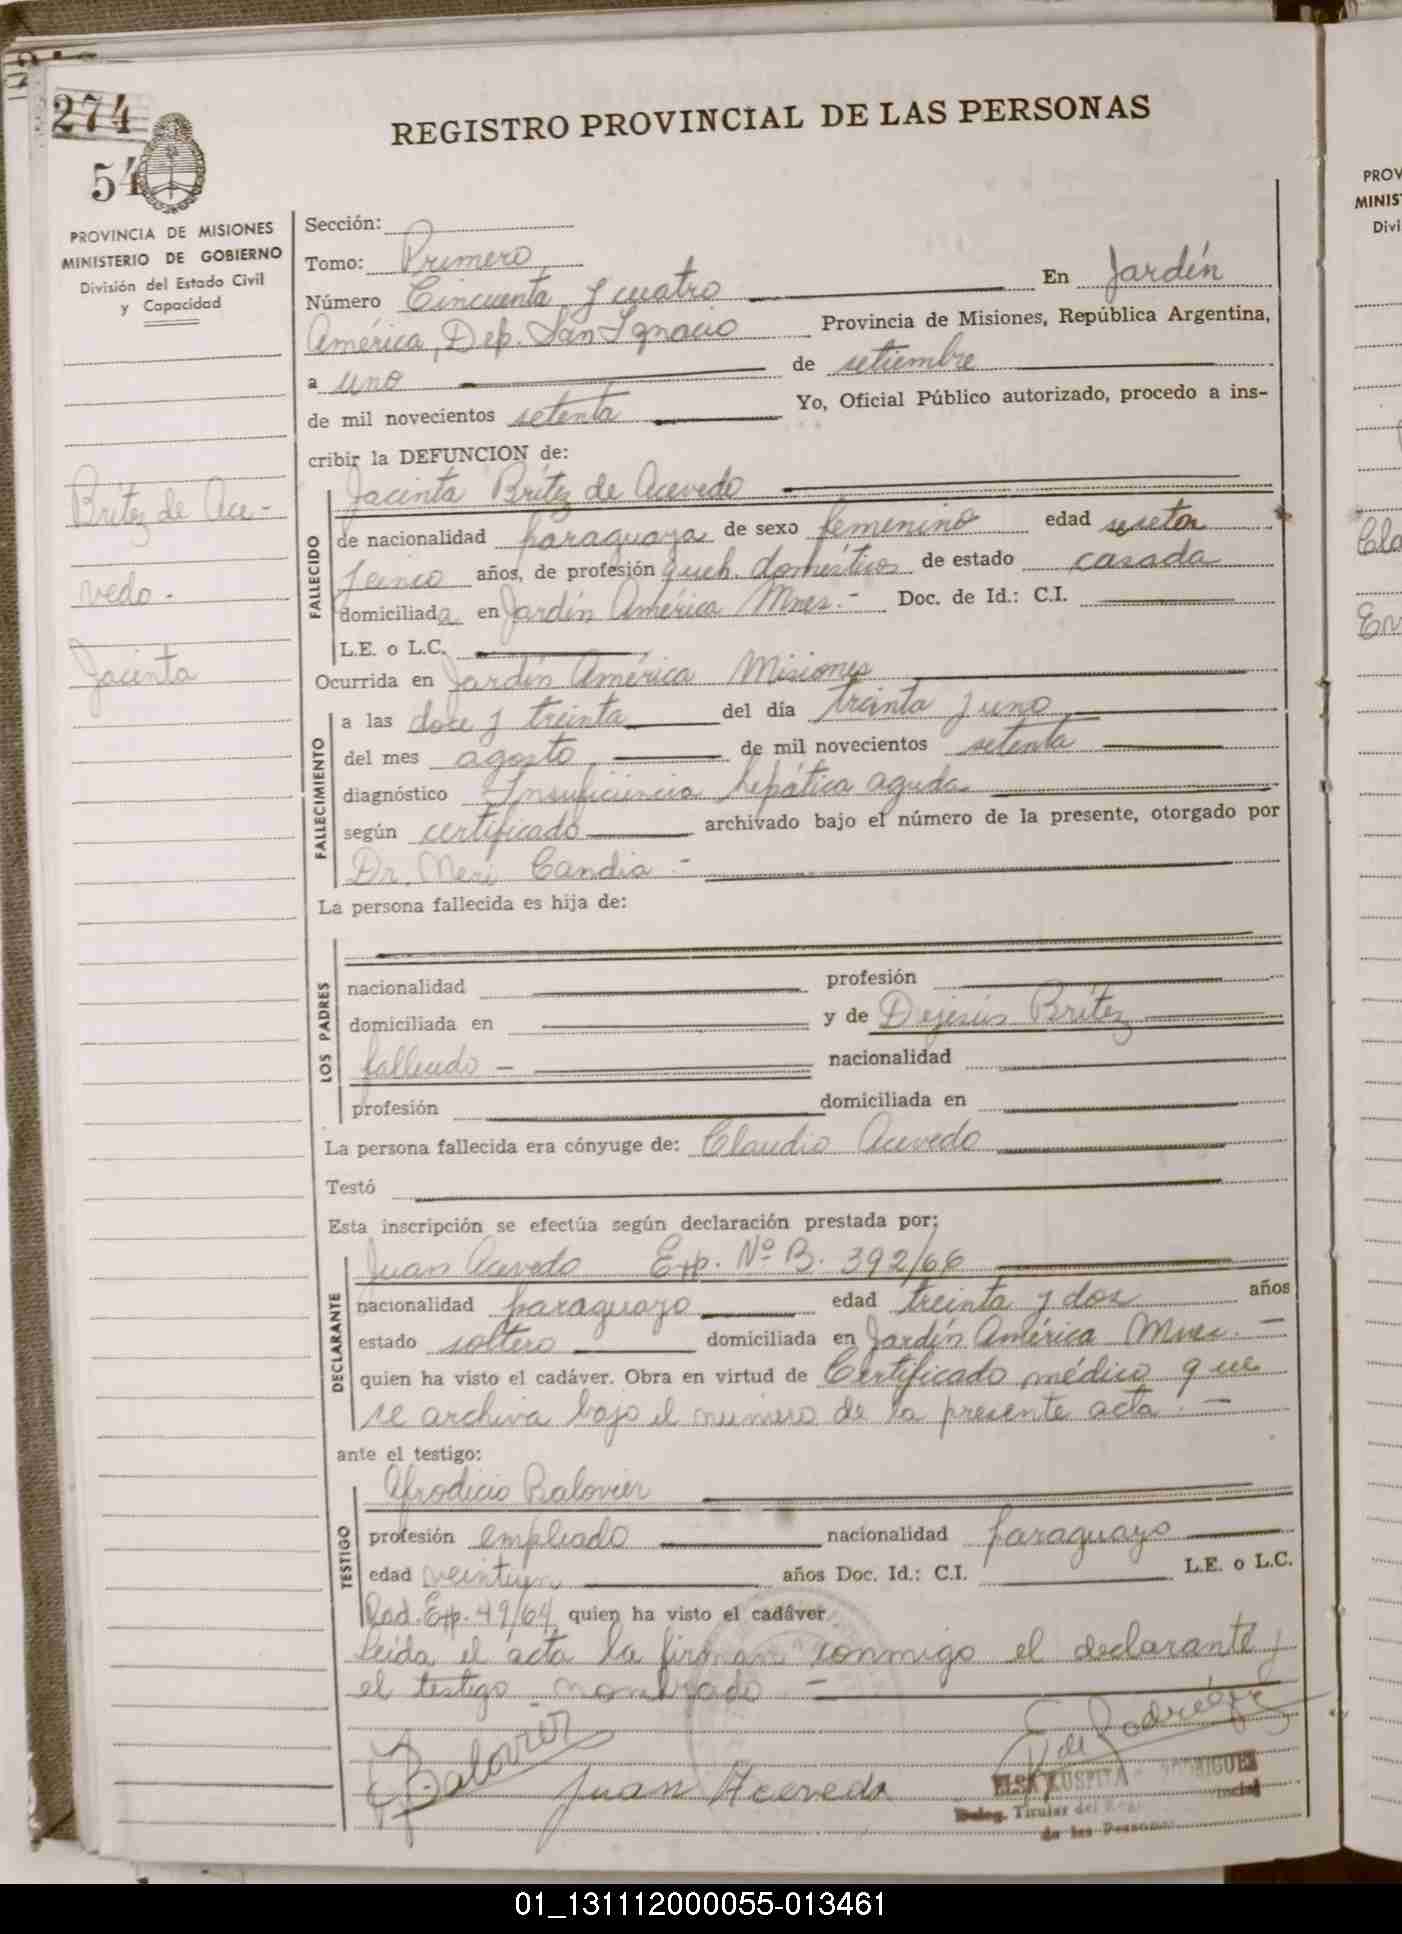 274
54
REGISTRO PROVINCIAL DE LAS PERSONAS
PROVINCIA DE MISIONES
MINISTERIO DE GOBIERNO
División del Estado Civil
y Capacidad
Sección:
Tomo: Primero
Número Cincuenta y cuatro En Jardín
América, Dep. San Ignacio Provincia de Misiones, República Argentina,
a uno de setiembre
de mil novecientos setenta Yo, Oficial Público autorizado, procedo a ins-
cribir la DEFUNCION de:
Brítez de Ace-
vedo.
Jacinta
FALLECIDO
Jacinta Brítez de Acevedo
de nacionalidad paraguaya de sexo femenino edad
años, de profesión queh. domésticos de estado casada
domiciliada en Jardín América Mnes.- Doc. de Id.: C.I.
L.E. o L.C.
Ocurrida en Jardín América Misiones
FALLECIMIENTO
a las doce y treinta del día treinta y uno
del mes agosto de mil novecientos setenta
diagnóstico Insuficiencia hepática aguda
según certificado archivado bajo el número de la presente, otorgado por
Dr. Candia -
La persona fallecida es hija de:
LOS PADRES
nacionalidad profesión
domiciliada en y de Dejesús Brítez
fallecido - nacionalidad
profesión domiciliada en
La persona fallecida era cónyuge de: Claudio Acevedo
Testó
Esta inscripción se efectúa según declaración prestada por:
DECLARANTE
Juan Acevedo Exp. Nº B. 392/66
nacionalidad paraguayo edad treinta y dos años
estado soltero domiciliada en Jardín América Mnes. -
quien ha visto el cadáver. Obra en virtud de Certificado médico que
se archiva bajo el número de la presente acta. -
ante el testigo:
TESTIGO
Afrodicio Balovier
profesión empleado nacionalidad paraguayo
edad veintiun años Doc. Id.: C.I. L.E. o L.C.
Rad. Exp. 49/64 quien ha visto el cadáver
Leída el acta la firman conmigo el declarante y
el testigo nombrado -
Balovier
Juan Acevedo
de Rodríguez
PROV
MINIS
Divi
01_131112000055-013461